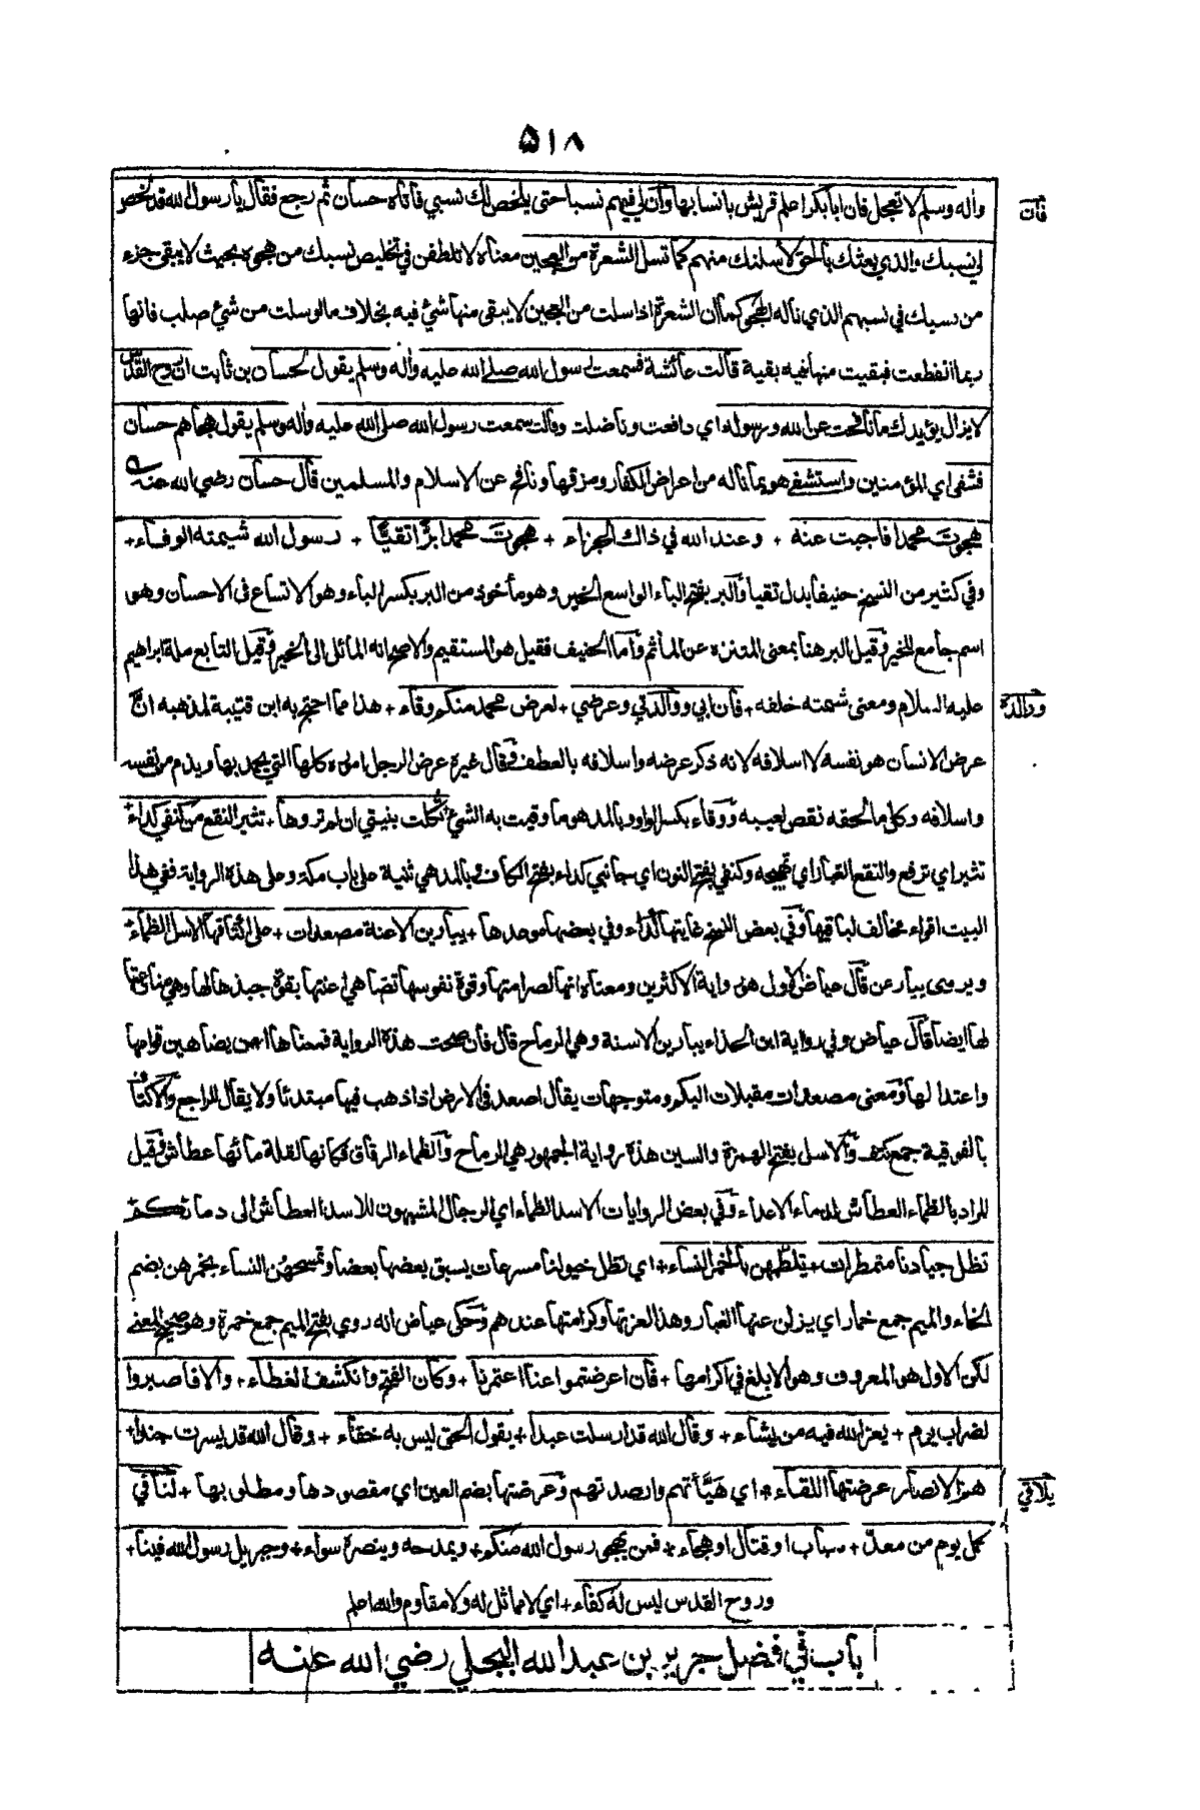 ۵۱۸
وأله وسلم لا تعجل فان ابابكر اعلم قريش بانسابها وان لي فيهم نسبا حتى يلخص لك نسبي فأتاه حسان ثم رجع فقال يا رسول الله قد لخص
فان
لي نسبك والذي بعثك بالحق لأسلنك منهم كما تسل الشعرة من العجين معناه لا تلطفن في تخليص نسبك من هجوه بحيث لا يبقى جزء
من نسبك في نسبهم الذي ناله الهجو كما ان الشعرة اذا سلت من العجين لا يبقى منها شئ فيه بخلاف ما لو سلت من شئ صلب فانها
ربما انقطعت فبقيت منها فيه بقية قالت عائشة فسمعت رسول الله صلى الله عليه وأله وسلم يقول لحسان بن ثابت ان روح القدس
لا يزال يؤيدك ما نافحت عن الله ورسوله اي دافعت وناضلت وقالت سمعت رسول الله صلى الله عليه وأله وسلم يقول هجاهم حسان
فشفى اي المؤمنين واستشفى هو بما ناله من اعراض الكفار ومزقها ونافح عن الاسلام والمسلمين قال حسان رضي الله عنه
هجوت محمدا فاجبت عنه + وعند الله في ذاك الجزاء + هجوت محمدا برًّا تقيًّا + رسول الله شيمته الوفاء +
وفي كثير من النسخ حنيفا بدل تقيا والبر بفتح الباء الواسع الخير وهو مأخوذ من البر بكسر الباء وهو الاتساع في الاحسان وهو
اسم جامع للخير وقيل البر هنا بمعنى المتنزه عن المأثم وأما الحنيف فقيل هو المستقيم والاصح انه المائل الى الخير وقيل التابع ملة ابراهيم
عليه السلام ومعنى شيمته خلقه + فان ابي ووالدتي وعرضي + لعرض محمد منكم وقاء + هذا مما احتج به ابن قتيبة لمذهبه انَّ
ووالده
عرض الانسان هو نفسه لا اسلافه لانه ذكر عرضه واسلافه بالعطف وقال غيره عرض الرجل اموره كلها التي يحمد بها ويذم من نفسه
واسلافه وكل ما لحقه نقص يعيبه ووقاء بكسر الواو وبالمد هو ما وقيت به الشئ ثكلت بنيتي ان لم تروها + تثير النقع من كنفي كداء +
تثير اي ترفع والنقع الغبار اي تهيجه وكنفي بفتح النون اي جانبي كداء بفتح الكاف وبالمد هي ثنية على باب مكة وعلى هذه الرواية ففي هذا
البيت اقواء مخالف لباقيها وفي بعض النسخ غايتها كداء وفي بعضها موعدها + يبارين الاعنة مصعدات + على اكتافها الاسل الظماء +
ويروى يبارعن قال عياض الاول هو رواية الاكثرين ومعناه انها لصرامتها وقوة نفوسها تضاهي اعنتها بقوة جبذها لها وهي منازعتها
لها ايضا قال عياض وفي رواية ابن الحذاء يبارين الاسنة وهي الرماح قال فان صحت هذه الرواية فمعناها انهن يضاهين قوامها
واعتدالها ومعنى مصعدات مقبلات اليكم ومتوجهات يقال اصعد في الارض اذا ذهب فيها مبتدئا ولا يقال للراجع والاكتاف
بالفوقية جمع كتف والاسل بفتح الهمزة والسين هذه رواية الجمهور هي الرماح والظماء الرقاق فكانها لقلة مائها عطاش وقيل
المراد بالظماء العطاش لدماء الاعداء وفي بعض الروايات الاسد الظماء اي الرجال المشبهون للاسد العطاش الى دمائكم
تظل جيادنا متمطرات + تلطمهن بالخمر النساء + اي تظل خيولنا مسرعات يسبق بعضها بعضا وتمسحهن النساء بخمرهن بضم
الخاء والميم جمع خمار اي يزلن عنها الغبار وهذا لعزتها وكرامتها عندهم وحكى عياض انه روي بفتح الميم جمع خمرة وهو صحيح المعنى
لكن الاول هو المعروف وهو الابلغ في اكرامها + فان اعرضتموا عنا اعتمرنا + وكان الفتح وانكشف الغطاء + والا فاصبروا
لضراب يوم + يعز الله فيه من يشاء + وقال الله قد ارسلت عبدا + يقول الحق ليس به خفاء + وقال الله قد يسرت جندا +
هم الانصار عرضتها اللقاء + اي هَيَّأتهم وارصدتهم وعرضتها بضم العين اي مقصودها ومطلوبها + لنا في
يلاقي
كل يوم من معدّ + سباب او قتال او هجاء + فمن يهجو رسول الله منكم + ويمدحه وينصره سواء + وجبريل رسول الله فينا +
وروح القدس ليس له كفاء + اي لا مماثل له ولا مقاوم والله اعلم
باب في فضل جرير بن عبد الله البجلي رضي الله عنه